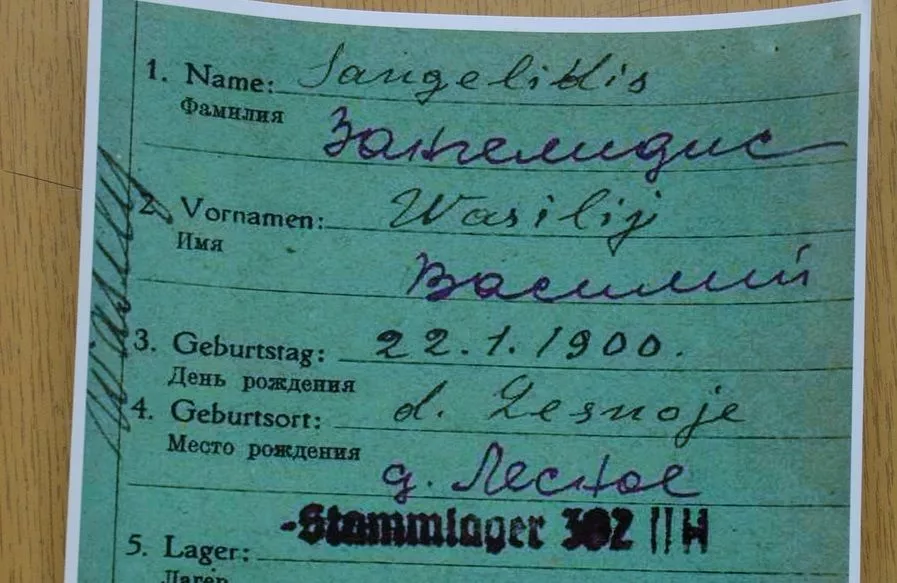 1. Name: Sangelidis
Фамилия
Зангелидис
2. Vornamen: Wasilij
Имя
Василий
3. Geburtstag: 22.1.1900.
День рождения
4. Geburtsort: d. Lesnoje
Место рождения
д. Лесное
Stammlager 302 II H
5. Lager:
Лагер